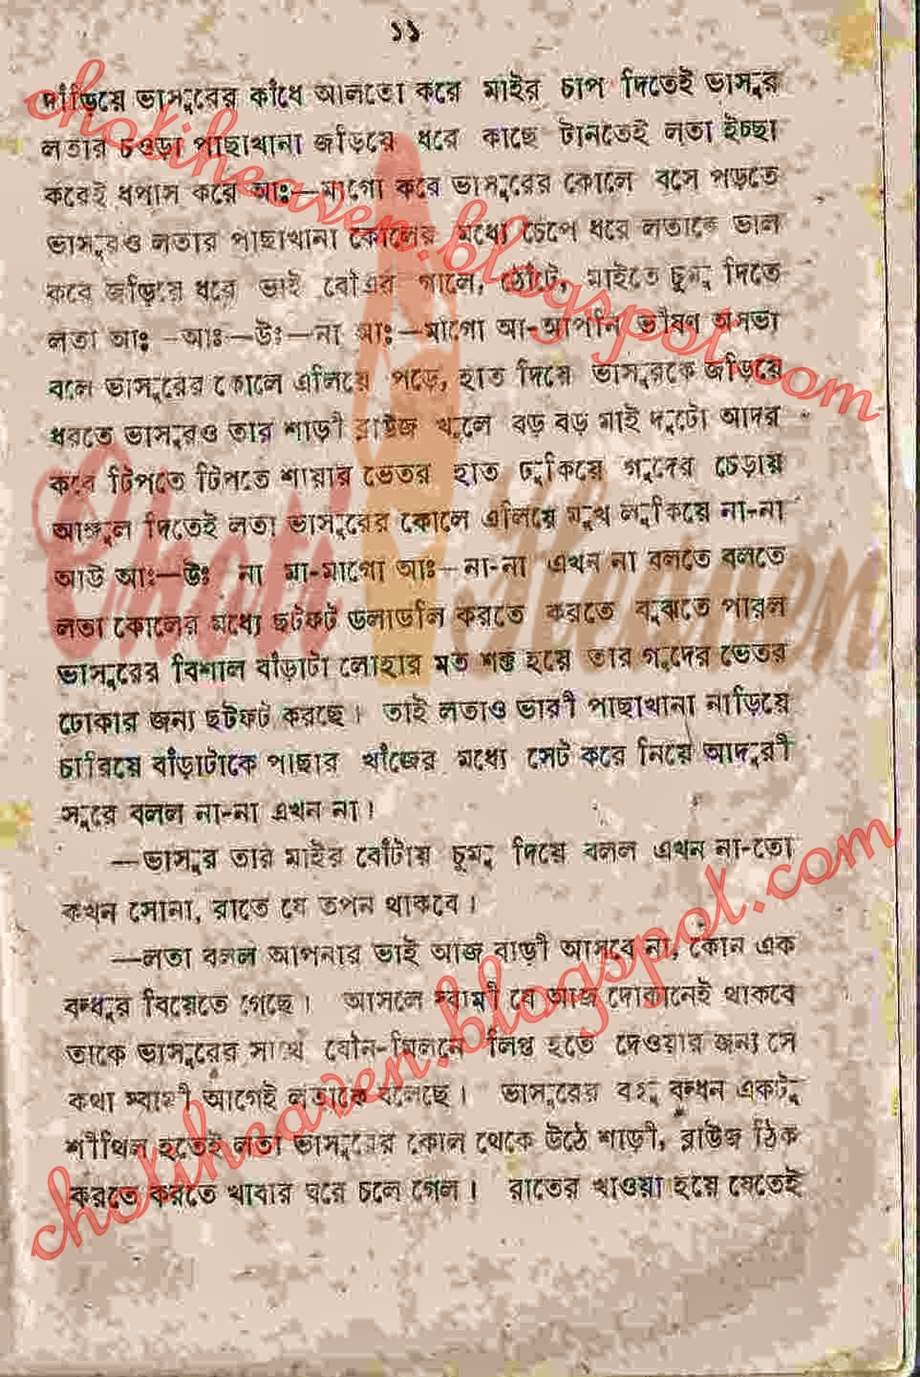 ১১
দাঁড়িয়ে ভাসুরের কাঁধে আলতো করে মাইর চাপ দিতেই ভাসুর
লতার চওড়া পাছাখানা জড়িয়ে ধরে কাছে টানতেই লতা ইচ্ছা
করেই ধপাস করে আঃ—মাগো করে ভাসুরের কোলে বসে পড়তে
ভাসুরও লতার পাছাখানা কোলের মধ্যে চেপে ধরে লতাকে ভাল
করে জড়িয়ে ধরে ভাই বৌএর গালে, ঠোঁটে, মাইতে চুমু দিতে
লতা আঃ—আঃ—উঃ—না আঃ—মাগো আ-আপনি ভীষণ অসভ্য
বলে ভাসুরের কোলে এলিয়ে পড়ে, হাত দিয়ে ভাসুরকে জড়িয়ে
ধরতে ভাসুরও তার শাড়ী ব্লাউজ খুলে বড় বড় মাই দুটো আদর
করে টিপতে টিপতে শায়ার ভেতর হাত ঢুকিয়ে গুদের চেড়ায়
আঙ্গুল দিতেই লতা ভাসুরের কোলে এলিয়ে মুখ লুকিয়ে না-না
আউ আঃ—উঃ না মা-মাগো আঃ—না-না এখন না বলতে বলতে
লতা কোলের মধ্যে ছটফট ডলাডলি করতে করতে বুঝতে পারল
ভাসুরের বিশাল বাঁড়াটা লোহার মত শক্ত হয়ে তার গুদের ভেতর
ঢোকার জন্য ছটফট করছে। তাই লতাও ভারী পাছাখানা নাড়িয়ে
চারিয়ে বাঁড়াটাকে পাছার খাঁজের মধ্যে সেট করে নিয়ে আদুরী
সুরে বলল না-না এখন না।
—ভাসুর তার মাইর বোঁটায় চুমু দিয়ে বলল এখন না-তো
কখন সোনা, রাতে যে তপন থাকবে।
—লতা বলল আপনার ভাই আজ বাড়ী আসবে না, কোন এক
বন্ধুর বিয়েতে গেছে। আসলে স্বামী যে আজ দোকানেই থাকবে
তাকে ভাসুরের সাথে যৌন-মিলনে লিপ্ত হতে দেওয়ার জন্য সে
কথা স্বামী আগেই লতাকে বলেছে। ভাসুরের বাহু বন্ধন একটু
শীথিল হতেই লতা ভাসুরের কোল থেকে উঠে শাড়ী, ব্লাউজ ঠিক
করতে করতে খাবার ঘরে চলে গেল। রাতের খাওয়া হয়ে যেতেই
chotiheaven.blogspot.com
Choti Heaven
chotiheaven.blogspot.com